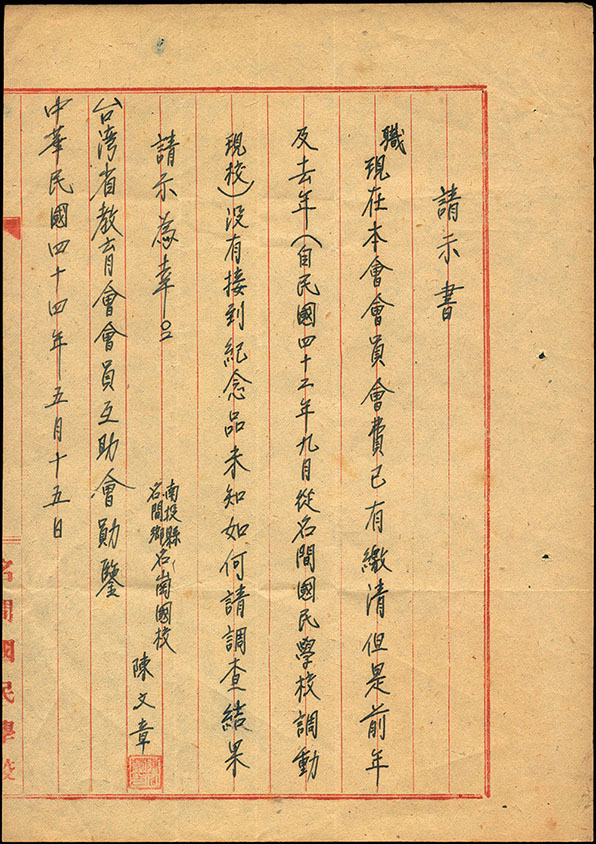 請示書
職現在本會會員會費已有繳清但是前年
及去年（自民國四十二年九月從名間國民學校調動
現校）沒有接到紀念品未知如何請調查結果
請示為幸。
南投縣
名間鄉
名崗國校
陳文章
台湾省教育會會員互助會勛鑒
中華民國四十四年五月十五日
名間國民學校